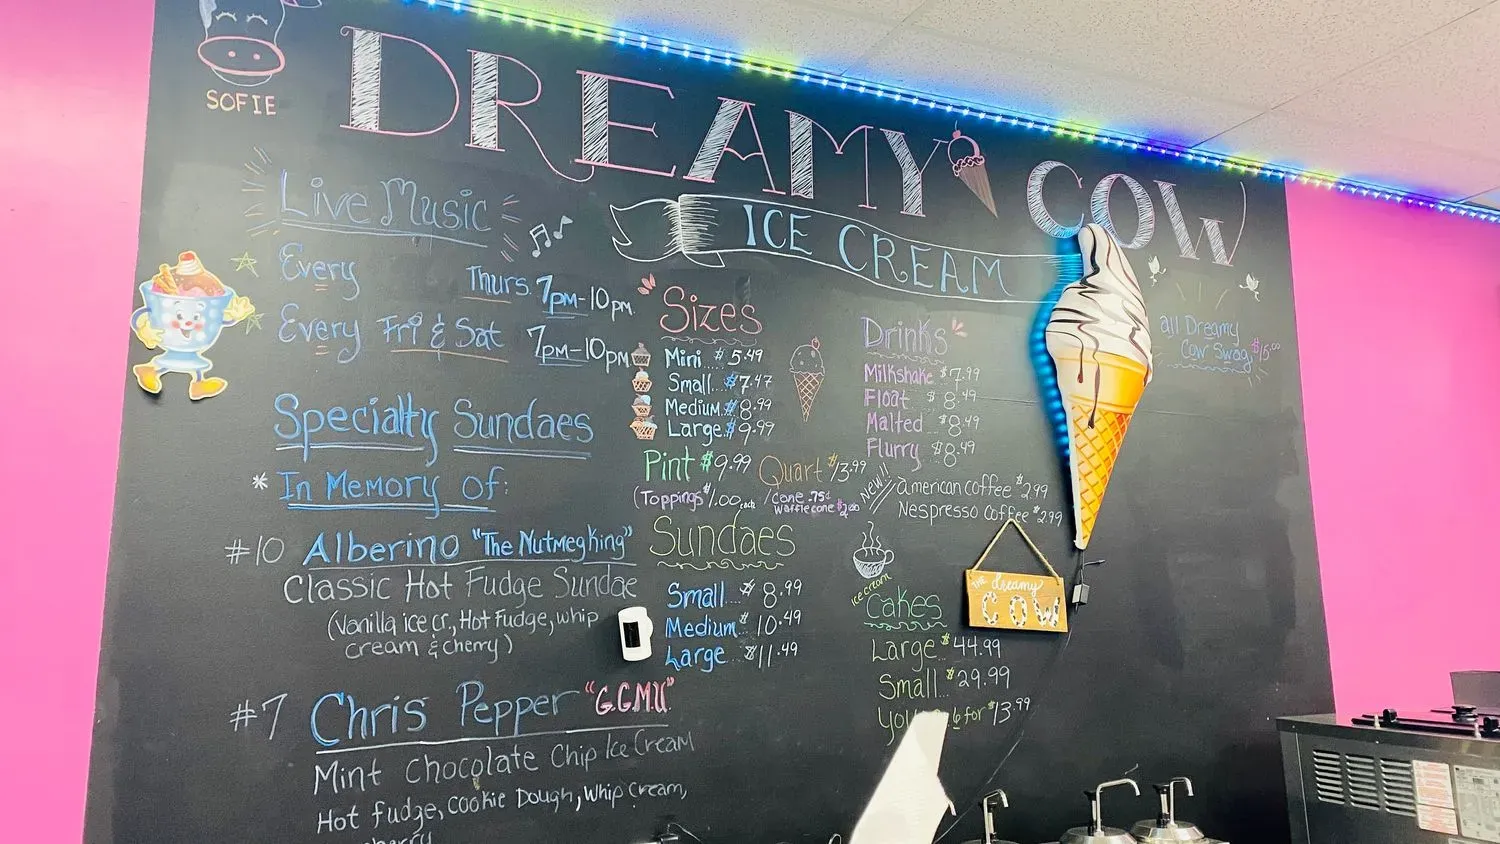 SOFIE
DREAMY COW
ICE CREAM
Live Music
Every Thurs. 7pm-10pm
Every Fri & Sat 7pm-10pm
Specialty Sundaes
* In Memory of:
#10 Alberino "The Nutmeg King"
Classic Hot Fudge Sundae
(Vanilla ice cr., Hot Fudge, whip
cream & cherry)
#7 Chris Pepper "G.G.M.U."
Mint Chocolate Chip Ice Cream
Hot fudge, cookie Dough, whip cream,
Sizes
Mini $5.49
Small... $7.47
Medium.. $8.99
Large.. $9.99
Pint $9.99 Quart $13.99
(Toppings $1.00 each /Cone .75¢
Waffle cone $2.00
Sundaes
Small... $8.99
Medium.. $10.49
Large... $11.49
Drinks
Milkshake $7.99
Float $8.49
Malted... $8.49
Flurry $8.49
New!! american coffee $2.99
Nespresso Coffee $2.99
Ice cream
Cakes
Large $44.99
Small... $29.99
6 for $13.99
all Dreamy
Cow Swag $15.00
THE dreamy
COW